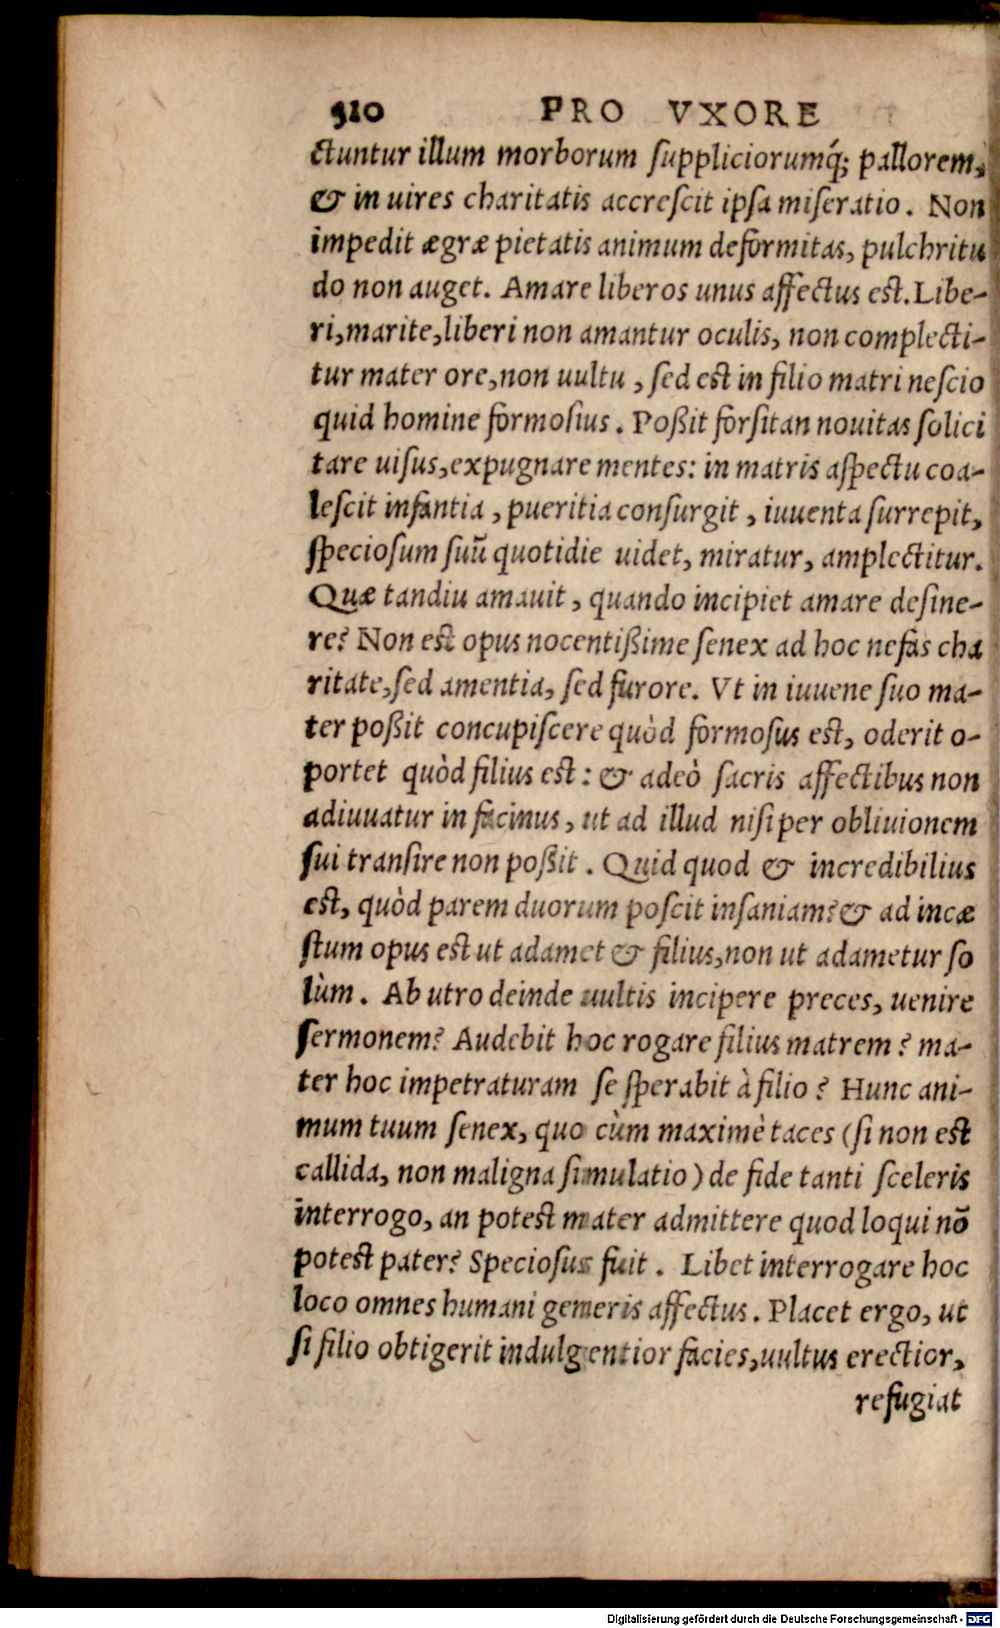 310 PRO VXORE
ctuntur illum morborum suppliciorumq́; pallorem,
& in uires charitatis accrescit ipsa miseratio. Non
impedit ægræ pietatis animum deformitas, pulchritu
do non auget. Amare liberos unus affectus est. Libe-
ri, marite, liberi non amantur oculis, non complecti-
tur mater ore, non uultu, sed est in filio matri nescio
quid homine formosius. Poßit forsitan nouitas solici
tare uisus, expugnare mentes: in matris aspectu coa-
lescit infantia, pueritia consurgit, iuuenta surrepit,
speciosum suũ quotidie uidet, miratur, amplectitur.
Quæ tandiu amauit, quando incipiet amare desine-
re? Non est opus nocentißime senex ad hoc nefas cha
ritate, sed amentia, sed furore. Vt in iuuene suo ma-
ter poßit concupiscere quòd formosus est, oderit o-
portet quòd filius est: & adeò sacris affectibus non
adiuuatur in facinus, ut ad illud nisi per obliuionem
sui transire non poßit. Quid quod & incredibilius
est, quòd parem duorum poscit insaniam? & ad incæ
stum opus est ut adamet & filius, non ut adametur so
lùm. Ab utro deinde uultis incipere preces, uenire
sermonem? Audebit hoc rogare filius matrem? ma-
ter hoc impetraturam se sperabit à filio? Hunc ani-
mum tuum senex, quo cùm maximè taces (si non est
callida, non maligna simulatio) de fide tanti sceleris
interrogo, an potest mater admittere quod loqui nõ
potest pater? Speciosus fuit. Libet interrogare hoc
loco omnes humani generis affectus. Placet ergo, ut
si filio obtigerit indulgentior facies, uultus erectior,
refugiat
Digitalisierung gefördert durch die Deutsche Forschungsgemeinschaft - DFG